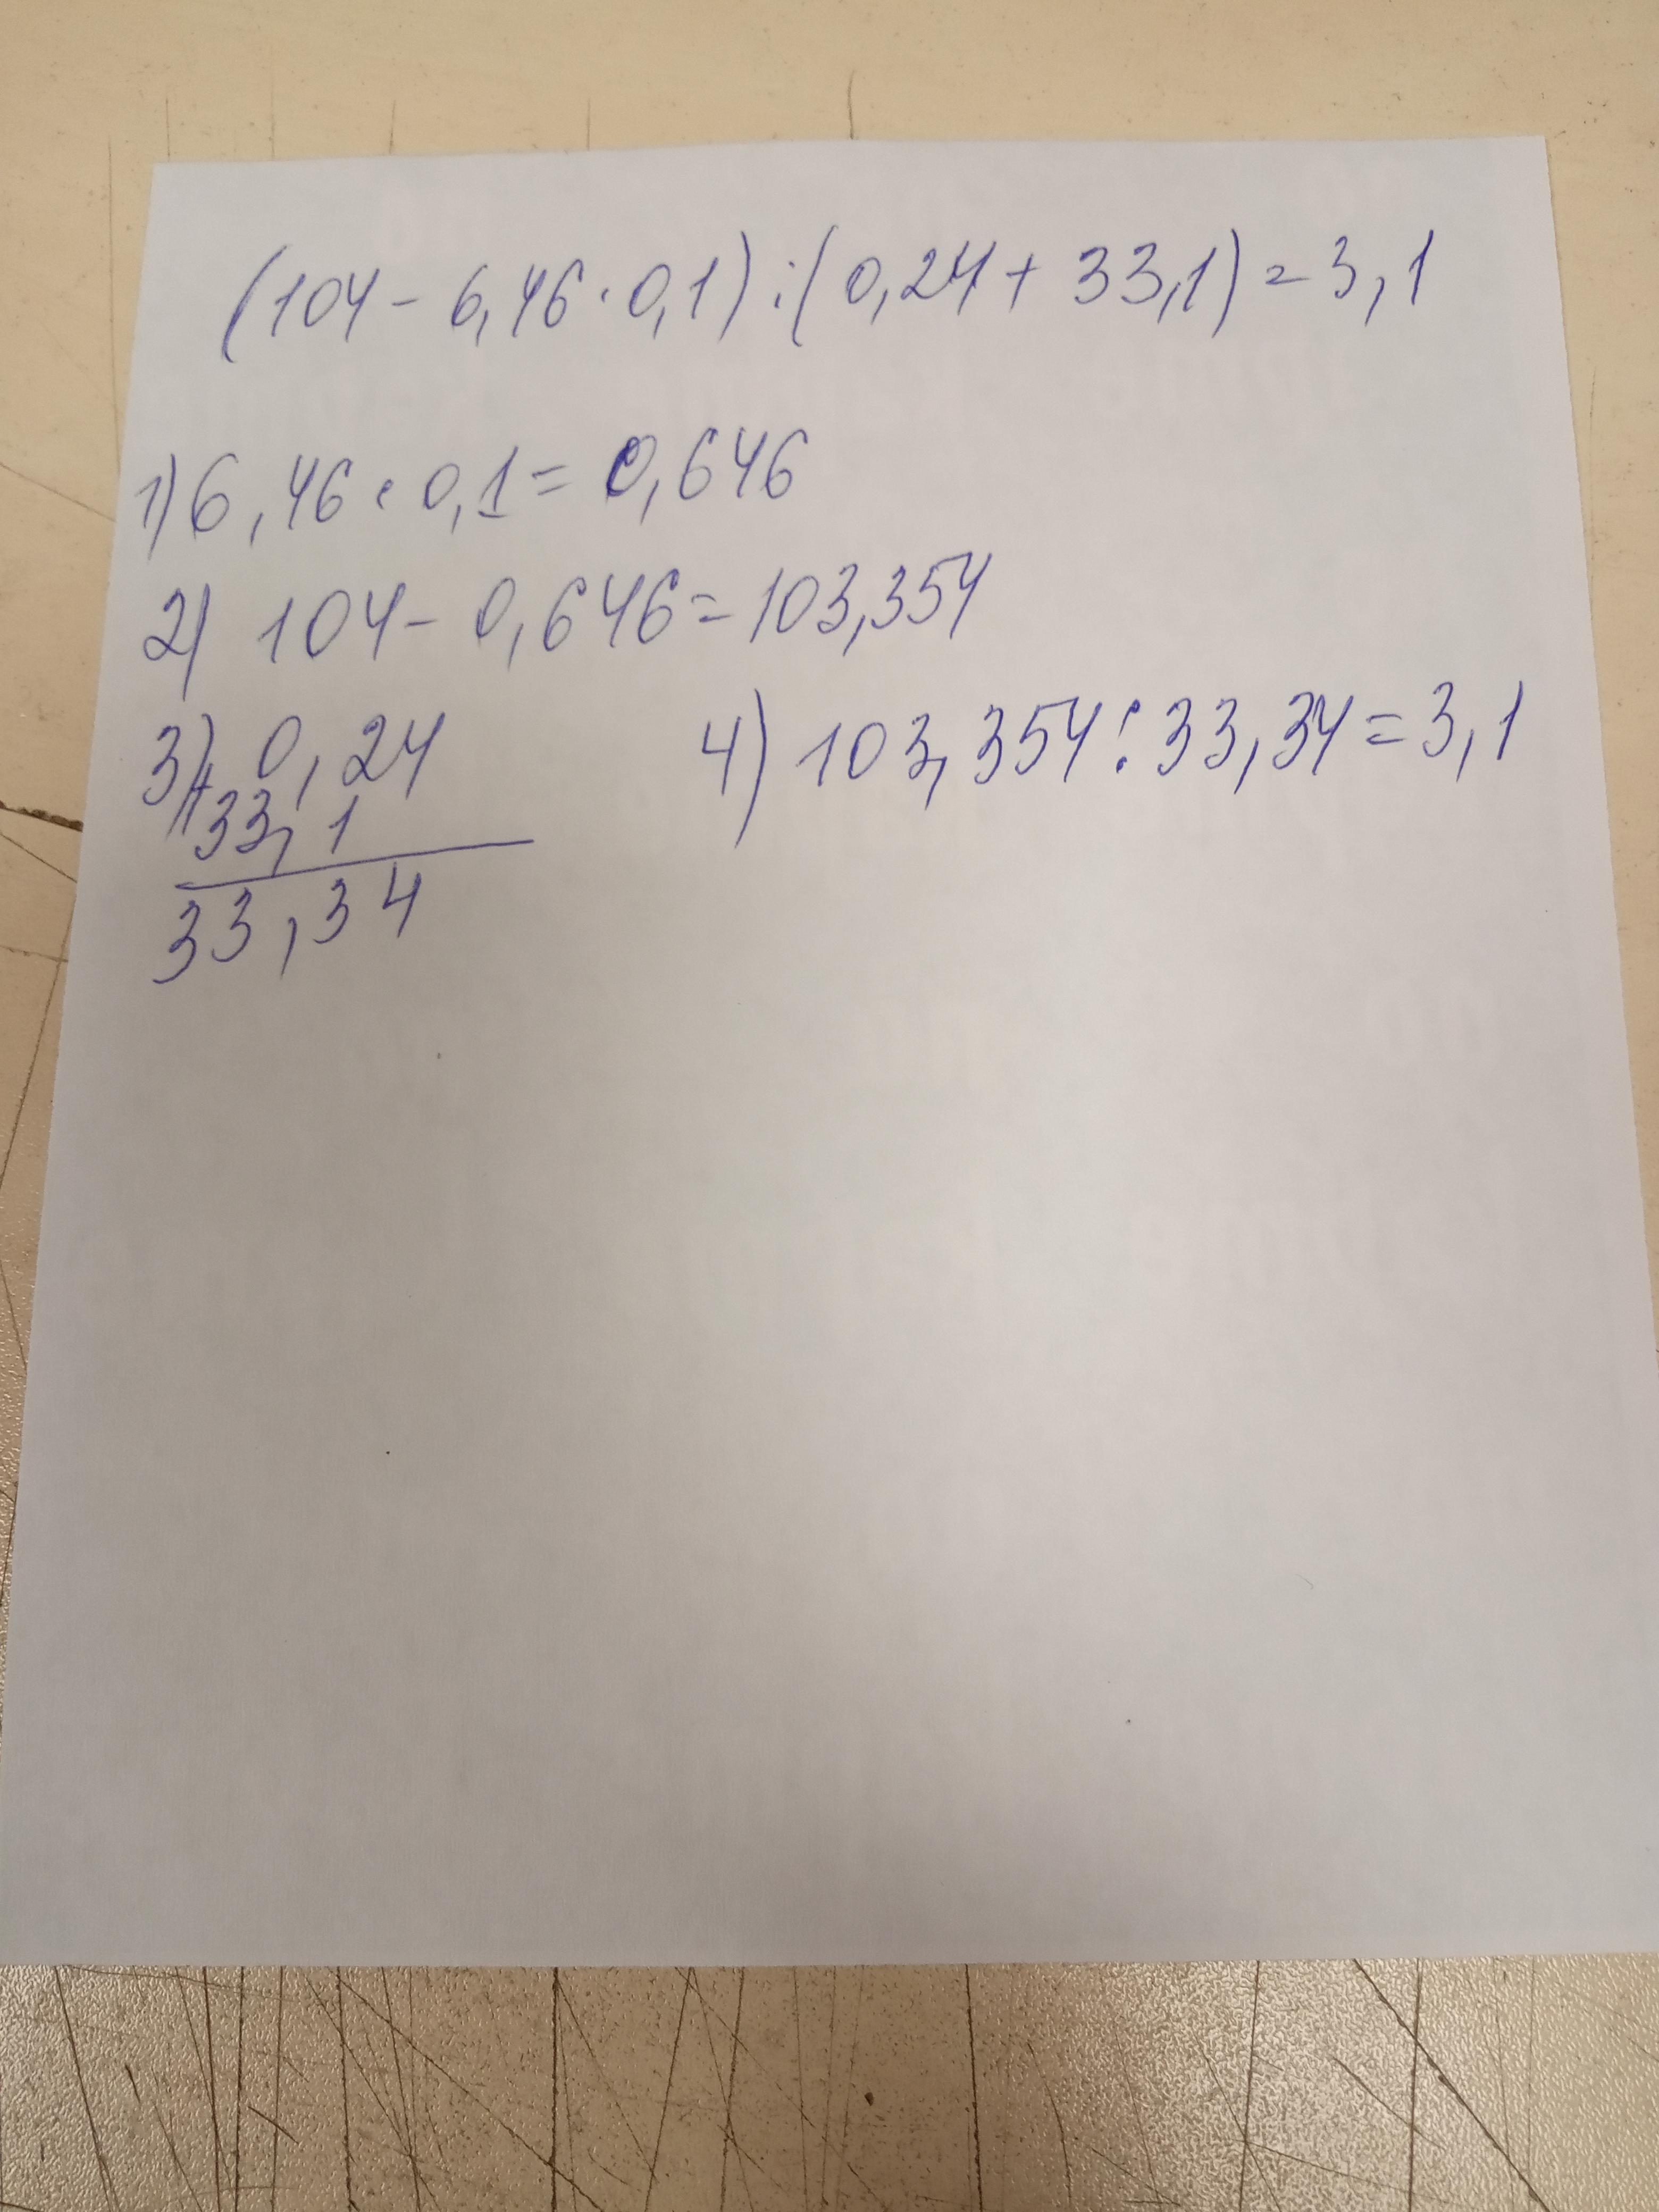 (104 - 6,46 · 0,1) : (0,24 + 33,1) = 3,1
1) 6,46 · 0,1 = 0,646
2) 104 - 0,646 = 103,354
3) + 0,24
33,1
33,34
4) 103,354 : 33,34 = 3,1